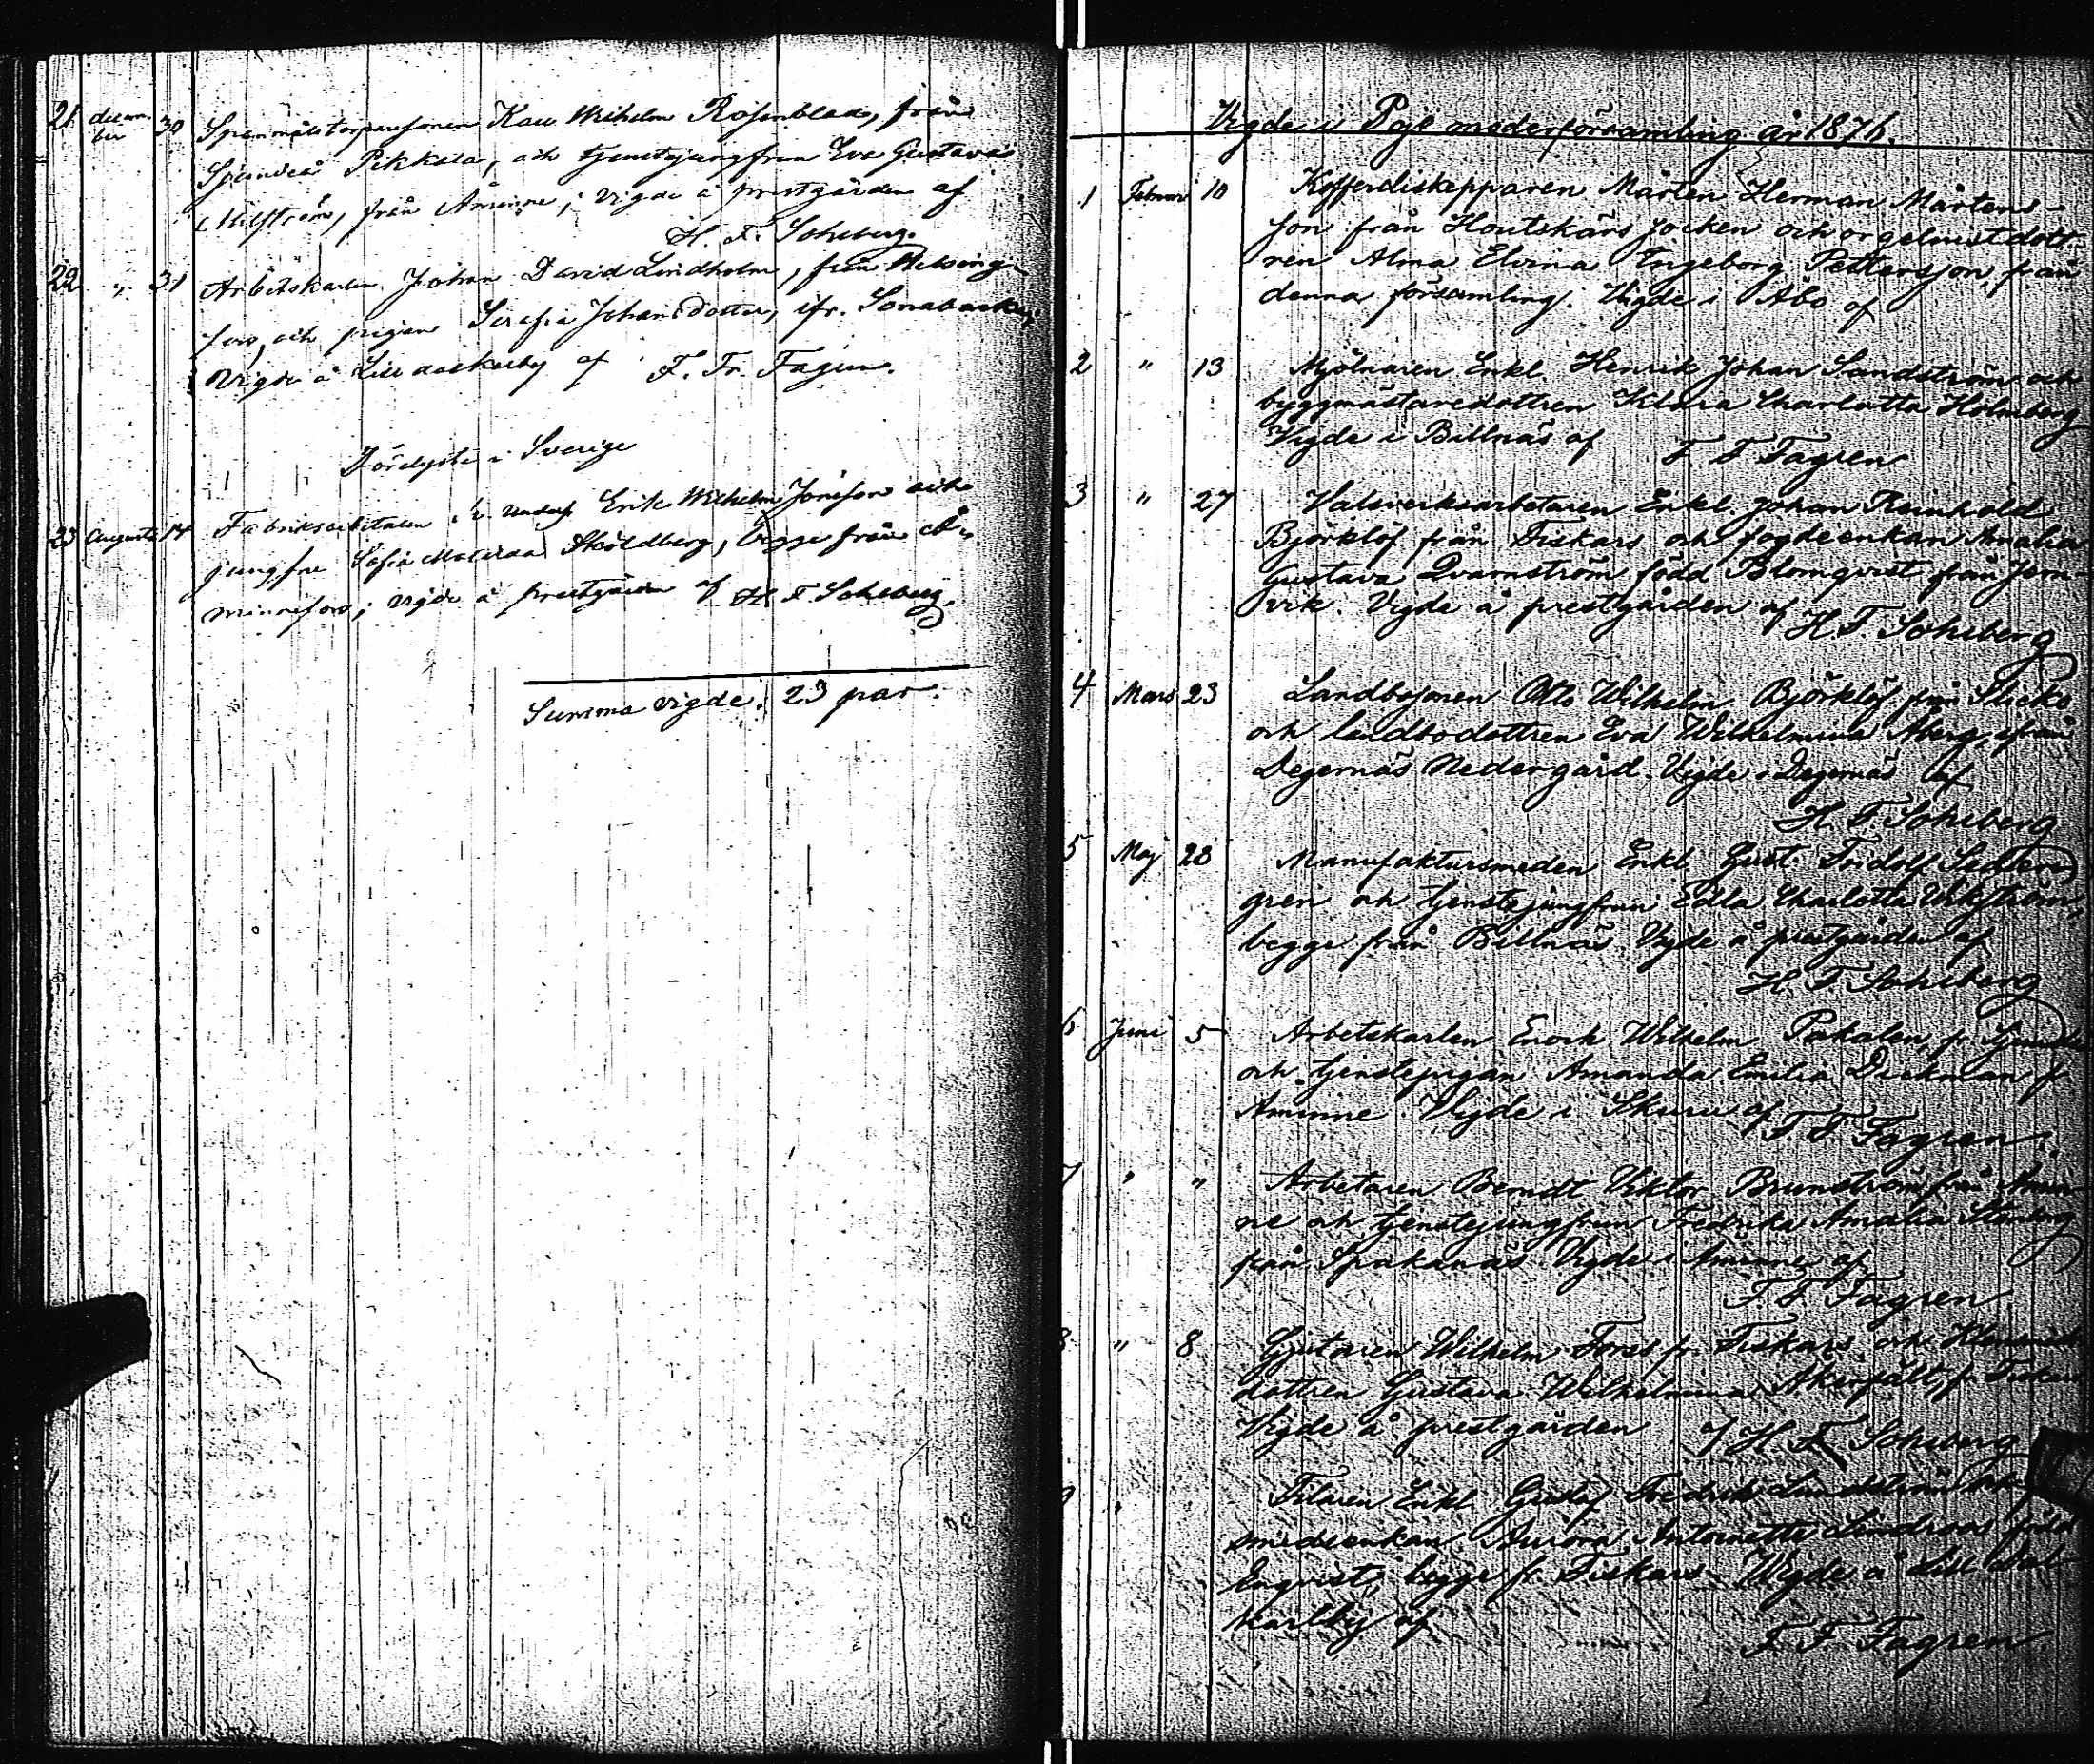 21. decem-
ber 30 Spannmålstorparesonen Karl Wilhelm Rosenblad, från
Sjundeå Pikkala, och tjenstejungfrun Eva Gustava
Milström, från Åminne; vigde å prestgården af
H. F. Sohlberg.
22. " 31 Arbetskarlen Johan David Lindholm, från Helsing-
fors, och pigan Serafia Johansdotter, ifr. Sonabacka,
vigde å Lill daskarby af F. Fr. Fagren.
i Sverige
23 Augusti 14 Fabriksarbetaren Erik Wilhelm Jonsson och
jungfru Sofia Skoldberg, begge från Å-
minnefors; vigde å prestgården af H F Sohlberg.
Summa vigde: 23 par.
Vigde i Pojo moderförsamling år 1876.
1 Februari 10 Kofferdiskepparen Mårten Herman Mårtens-
son från Houtskärs socken och orgelnistdott-
ren Alma Elvina Engeborg Pettersson, från
denna församling. Vigde i Åbo af
2 " 13 Mjölnaren Enkl. Henrik Johan Sandström och
byggmästaredottren Klara Charlotta Holmberg
Vigde i Billnäs af F F Fagren
3 " 27 Valsverksarbetaren Enkl. Johan Reinhold
Björklöf från Fiskars och fogdeenkan Amalia
Gustava Qvarnström född Blomqvist från Jern-
vik. Vigde å prestgården af H F. Sohlberg
4 Mars 23 Landbosonen Otto Wilhelm Björklöf från Slicko
och landbodottren Eva Wilhelmina Åberg, från
Degernäs Nedergård. Vigde i Degernäs af
H. F. Sohlberg
5 Maj 28 Manufaktursmeden Enkl. Gust. Fridolf Seder-
gren och tjenstejungfrun Edla Charlotta Wikström,
begge från Billnäs. Vigde å prestgården af
H. F. Sohlberg
6 Juni 5 Arbetskarlen Enock Wilhelm Pakalen, fr. Sjundeå
och tjenstepigan Amanda Emilia Dickman fr
Åminne. Vigde i Skuru af F F Fagren.
7 " " Arbetaren Berndt Viktor Brunström från Åmin-
ne och tjenstejungfrun Fredrika Amalia Stenberg
från Spakanäs. Vigde i Åminne af
F. F Fagren
8 " 8 Gjutaren Wilhelm Forss fr. Fiskars och
dottren Gustava Wilhelmina Åkerfält, fr. Fiskars
Vigde å prestgården af H. F Sohlberg
9 " Filaren Enkl. Gustaf Fredrik Lindström och
smedsenkan Aurora Antoinette Lindroos född
Engvist, begge fr. Fiskars. Vigde å Lill Dal-
karlby af
F. F Fagren.